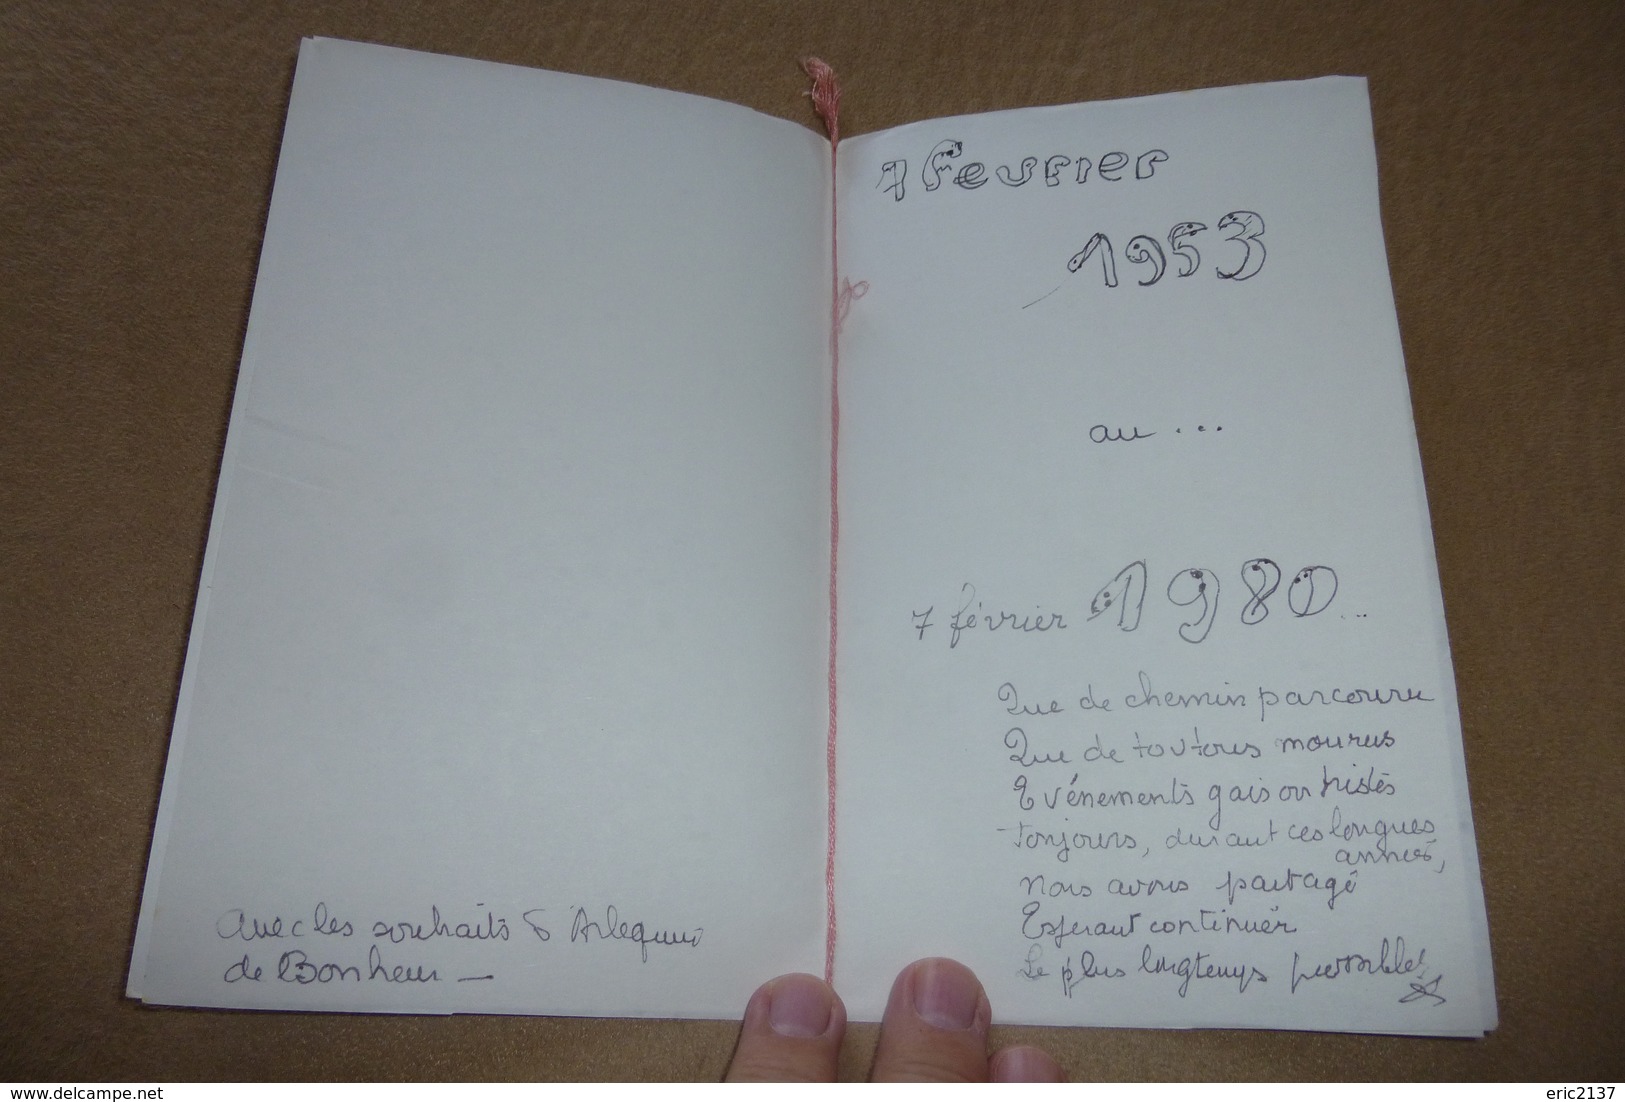 Avec les souhaits d'Arlequin
de Bonheur –
7 Fevrier
1953
au ...
7 février 1980 ...
Que de chemin parcouru
Que de toutous mourus
Evénements gais ou tristes
Toujours, durant ces longues
années,
Nous avons partagé
Esperant continuer
Le plus longtemps possible!
www.delcampe.net
eric2137